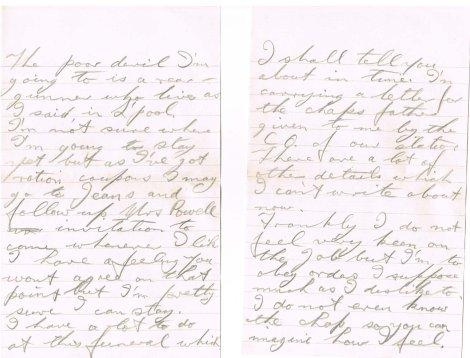 The poor devil I'm
going to is a rear-
gunner who lives as
I said in L'pool.
I'm not sure where
I'm going to stay
yet but as I've got
ration coupons I may
go to Jeans and
follow up Mrs Powell
invitation to
come whenever I like
I have a feeling you
wont agree on that
point but I'm pretty
sure I can stay.
I have a lot to do
at this funeral which
I shall tell you
about in time. I'm
carrying a letter for
the chaps father
given to me by the
C.O. of our station
There are a lot of
other details which
I can't write about
now.
Frankly I do not
feel very keen on
the job but I'm to
obey orders I suppose
much as I dislike to.
I do not even know
the chap so you can
imagine how I feel.